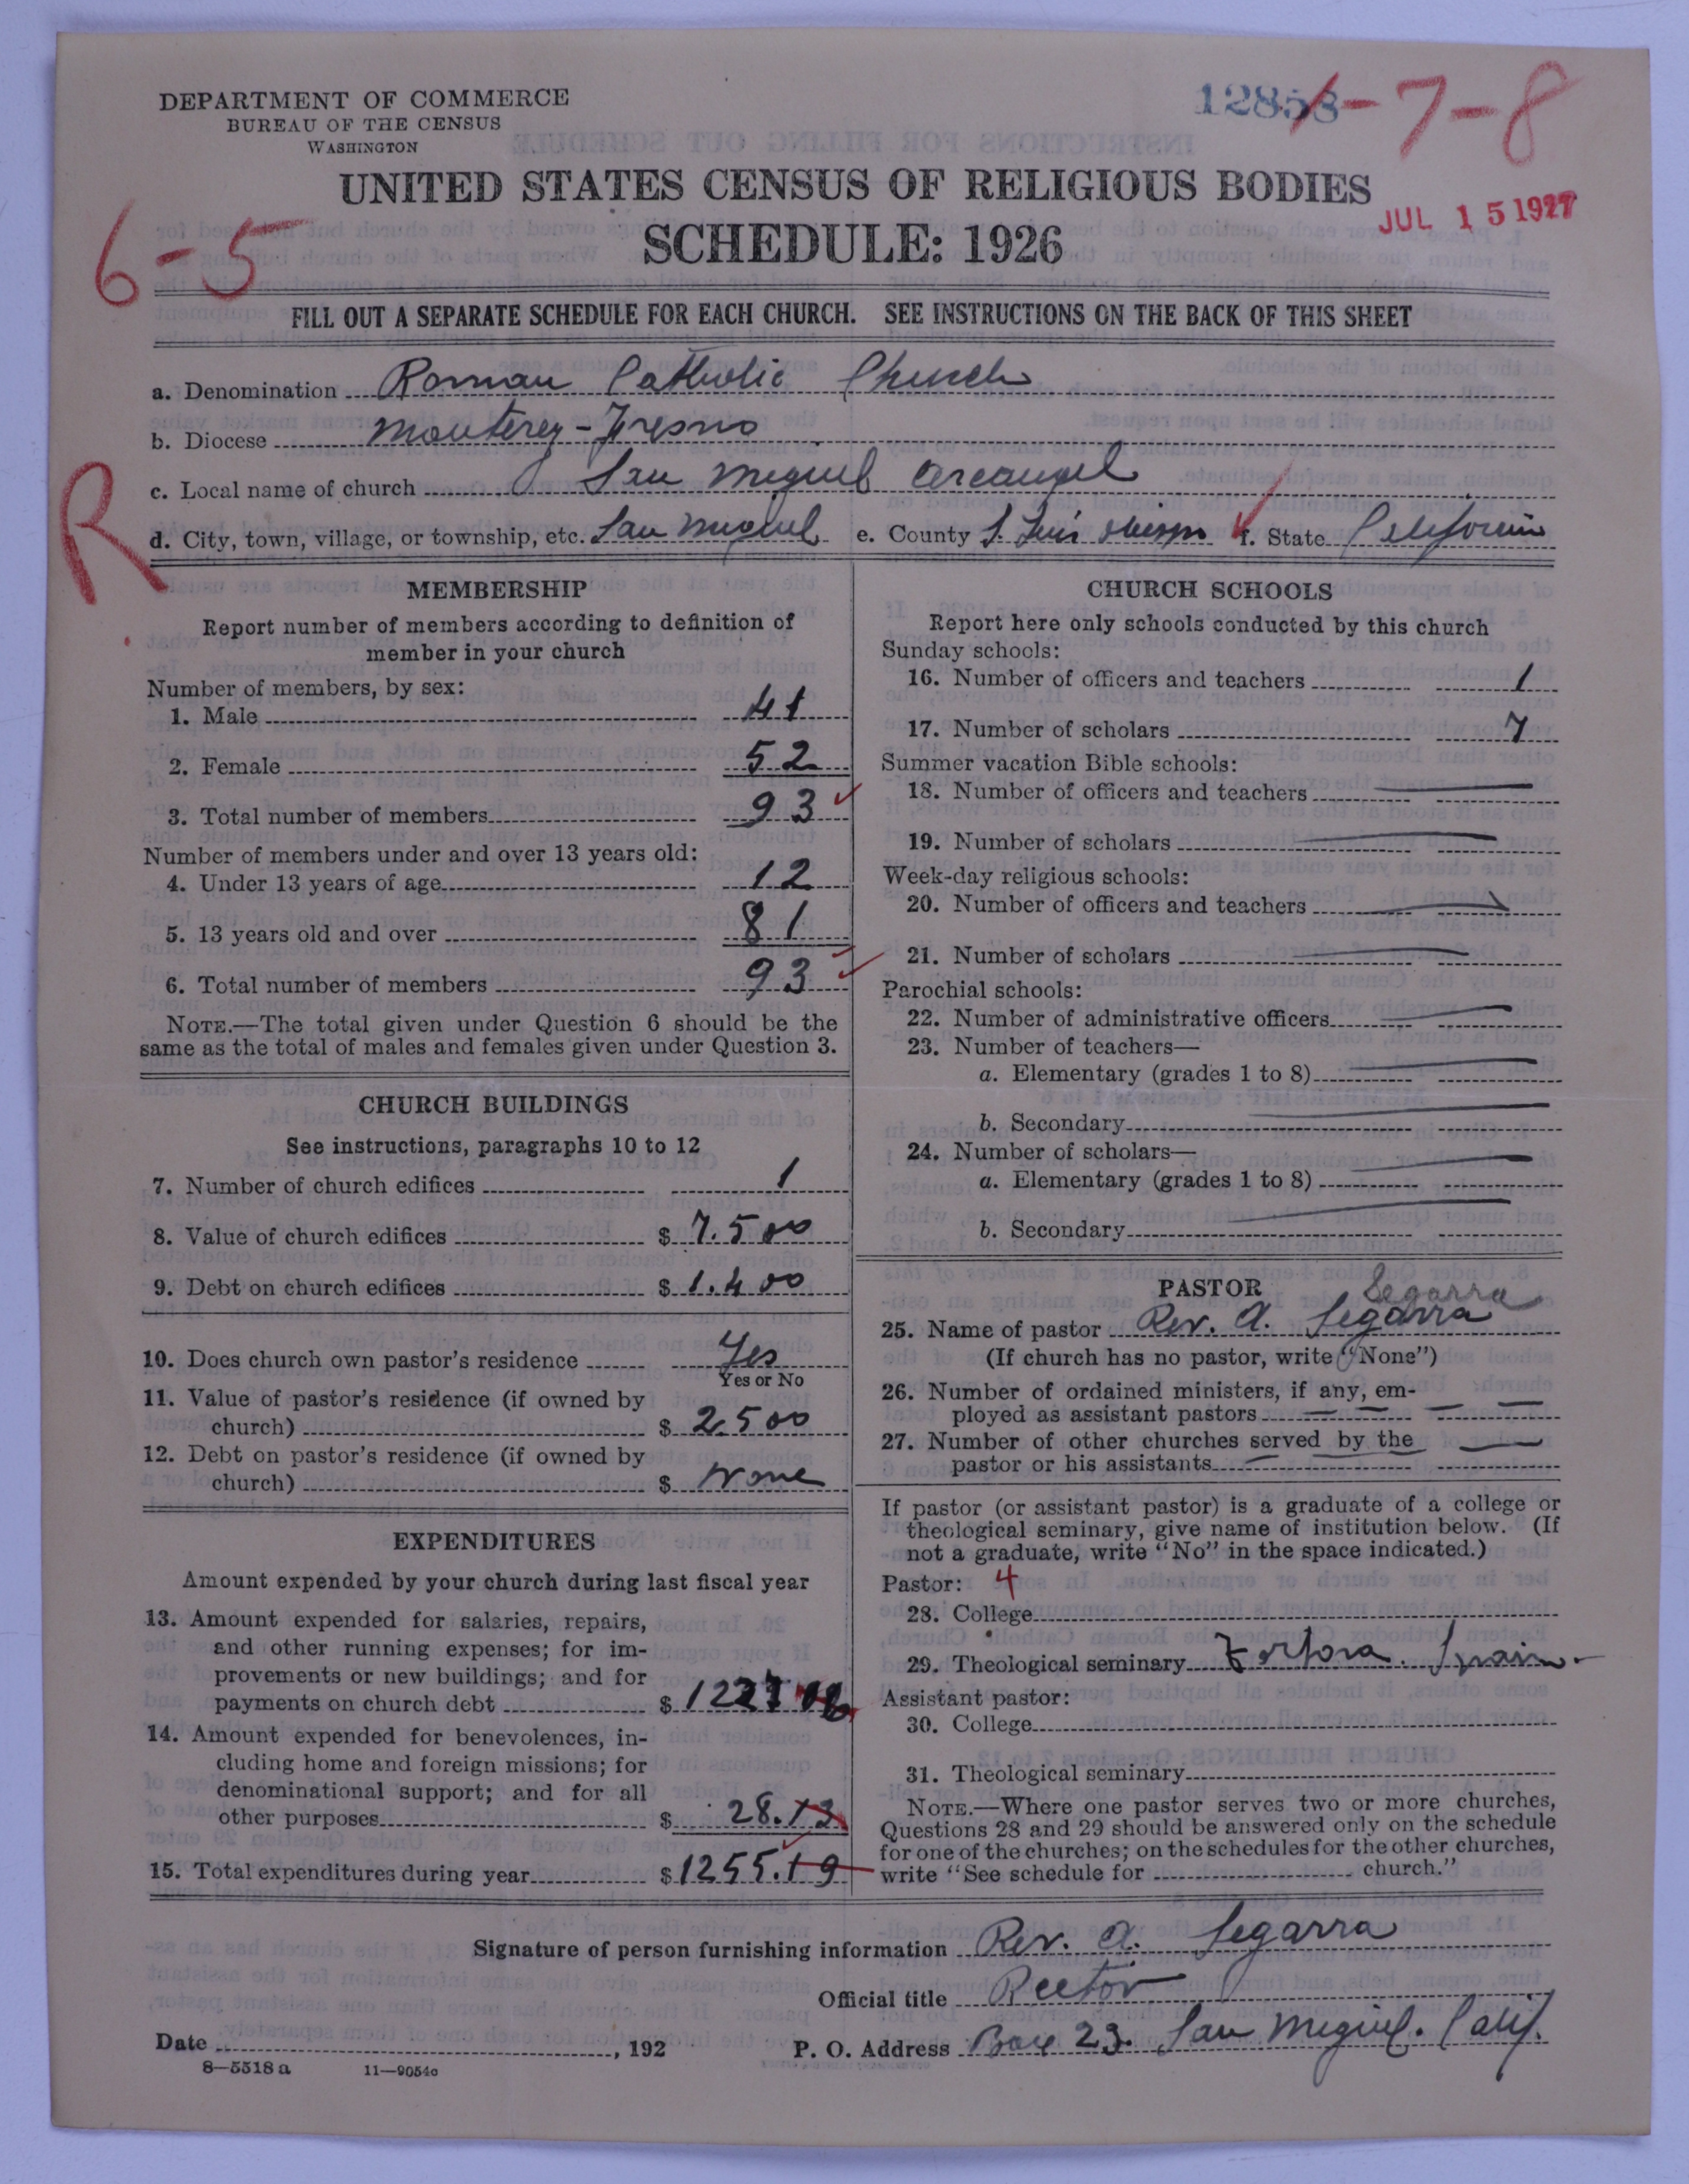 DEPARTMENT OF COMMERCE
BUREAU OF THE CENSUS
WASHINGTON
-7-8
UNITED STATES CENSUS OF RELIGIOUS BODIES
JUL 15 1927
6-5
SCHEDULE: 1926
FILL OUT A SEPARATE SCHEDULE FOR EACH CHURCH. SEE INSTRUCTIONS ON THE BACK OF THIS SHEET
a. Denomination Roman Catholic Church
b. Diocese Monterey-Fresno
c. Local name of church San Miguel Arcangel
R
d. City, town, village, or township, etc. San Miguel e. County S. Luis Obispo f. State California
MEMBERSHIP
Report number of members according to definition of
member in your church
Number of members, by sex:
1. Male 41
2. Female 52
3. Total number of members 93
Number of members under and over 13 years old:
4. Under 13 years of age 12
5. 13 years old and over 81
6. Total number of members 93
NOTE.—The total given under Question 6 should be the
same as the total of males and females given under Question 3.
CHURCH BUILDINGS
See instructions, paragraphs 10 to 12
7. Number of church edifices 1
8. Value of church edifices $ 7.500
9. Debt on church edifices $ 1.400
10. Does church own pastor's residence Yes
Yes or No
11. Value of pastor's residence (if owned by
church) $ 2.500
12. Debt on pastor's residence (if owned by
church) $ None
EXPENDITURES
Amount expended by your church during last fiscal year
13. Amount expended for salaries, repairs,
and other running expenses; for im-
provements or new buildings; and for
payments on church debt $
14. Amount expended for benevolences, in-
cluding home and foreign missions; for
denominational support; and for all
other purposes $ 28.13
15. Total expenditures during year $ 1255.19
CHURCH SCHOOLS
Report here only schools conducted by this church
Sunday schools:
16. Number of officers and teachers 1
17. Number of scholars 7
Summer vacation Bible schools:
18. Number of officers and teachers —
19. Number of scholars —
Week-day religious schools:
20. Number of officers and teachers —
21. Number of scholars —
Parochial schools:
22. Number of administrative officers —
23. Number of teachers—
a. Elementary (grades 1 to 8) —
b. Secondary —
24. Number of scholars—
a. Elementary (grades 1 to 8) —
b. Secondary —
PASTOR
Segarra
25. Name of pastor Rev. A. Segarra
(If church has no pastor, write "None")
26. Number of ordained ministers, if any, em-
ployed as assistant pastors — — — —
27. Number of other churches served by the
pastor or his assistants — —
If pastor (or assistant pastor) is a graduate of a college or
theological seminary, give name of institution below. (If
not a graduate, write "No" in the space indicated.)
Pastor: 4
28. College
29. Theological seminary Tortosa. Spain.
Assistant pastor:
30. College
31. Theological seminary
NOTE.—Where one pastor serves two or more churches,
Questions 28 and 29 should be answered only on the schedule
for one of the churches; on the schedules for the other churches,
write "See schedule for church."
Signature of person furnishing information Rev. A. Segarra
Official title Rector
Date , 192 P. O. Address Box 23. San Miguel. Calif.
8—5518 a 11—9054c